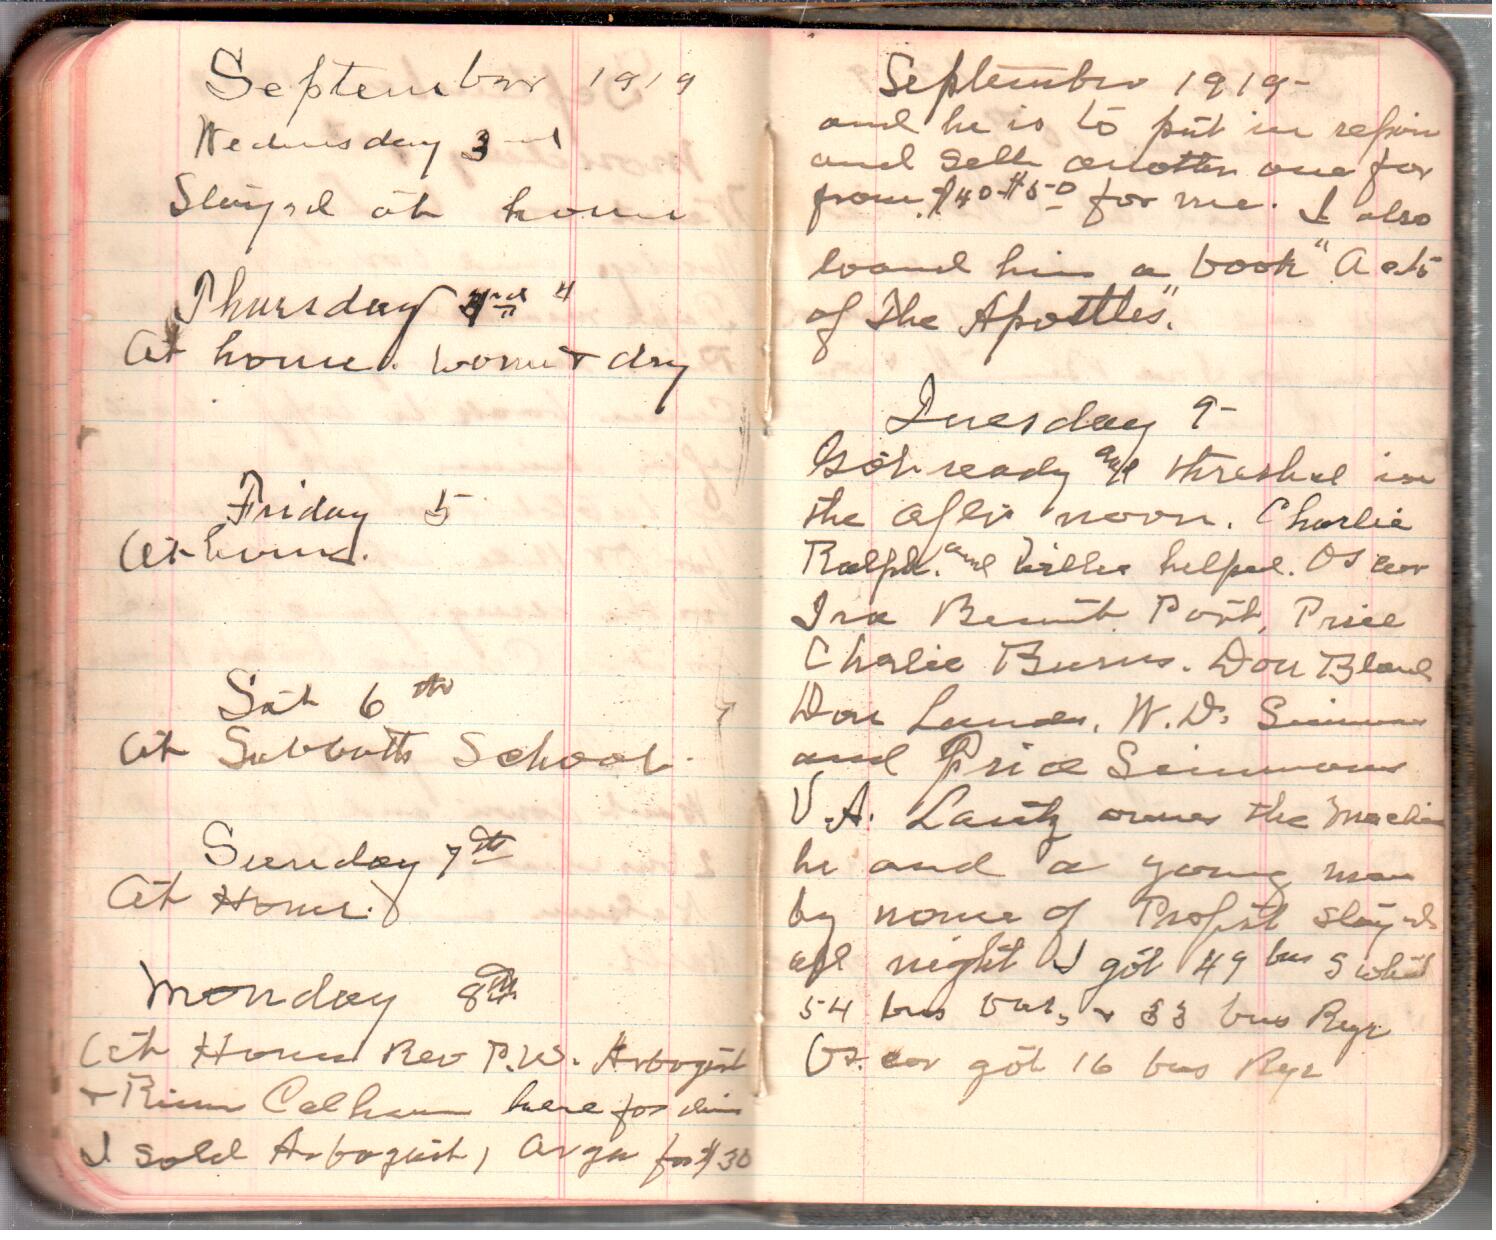 September 1919
Wednesday 3rd
Stayed at home
Thursday 4
At home. Worm & dry
Friday 5
At home.
Sat 6th
At Sabbath School.
Sunday 7th
At Home.
Monday 8th
At Home Rev P.W. Arbogast
& Calhoun here for din
I sold Arbogast 1 organ for $30
September 1919-
and he is to put in repair
and sell another one for
from $40-$50 for me. I also
loand him a book "Acts
of The Apostles".
Tuesday 9-
Got ready and threshed in
the after noon. Charlie
Ralph. and Willie helped. Oscar
Ira Port, Price
Charlie Burns. Don Bland
Don W.D. Simmons
and Price Simmons
V.A. Lantz ownes the Machin
he and a young man
by nome of Profit stayed
all night I got 49 bus
54 bus & 33 bus Rye
Oscar got 16 bus Rye